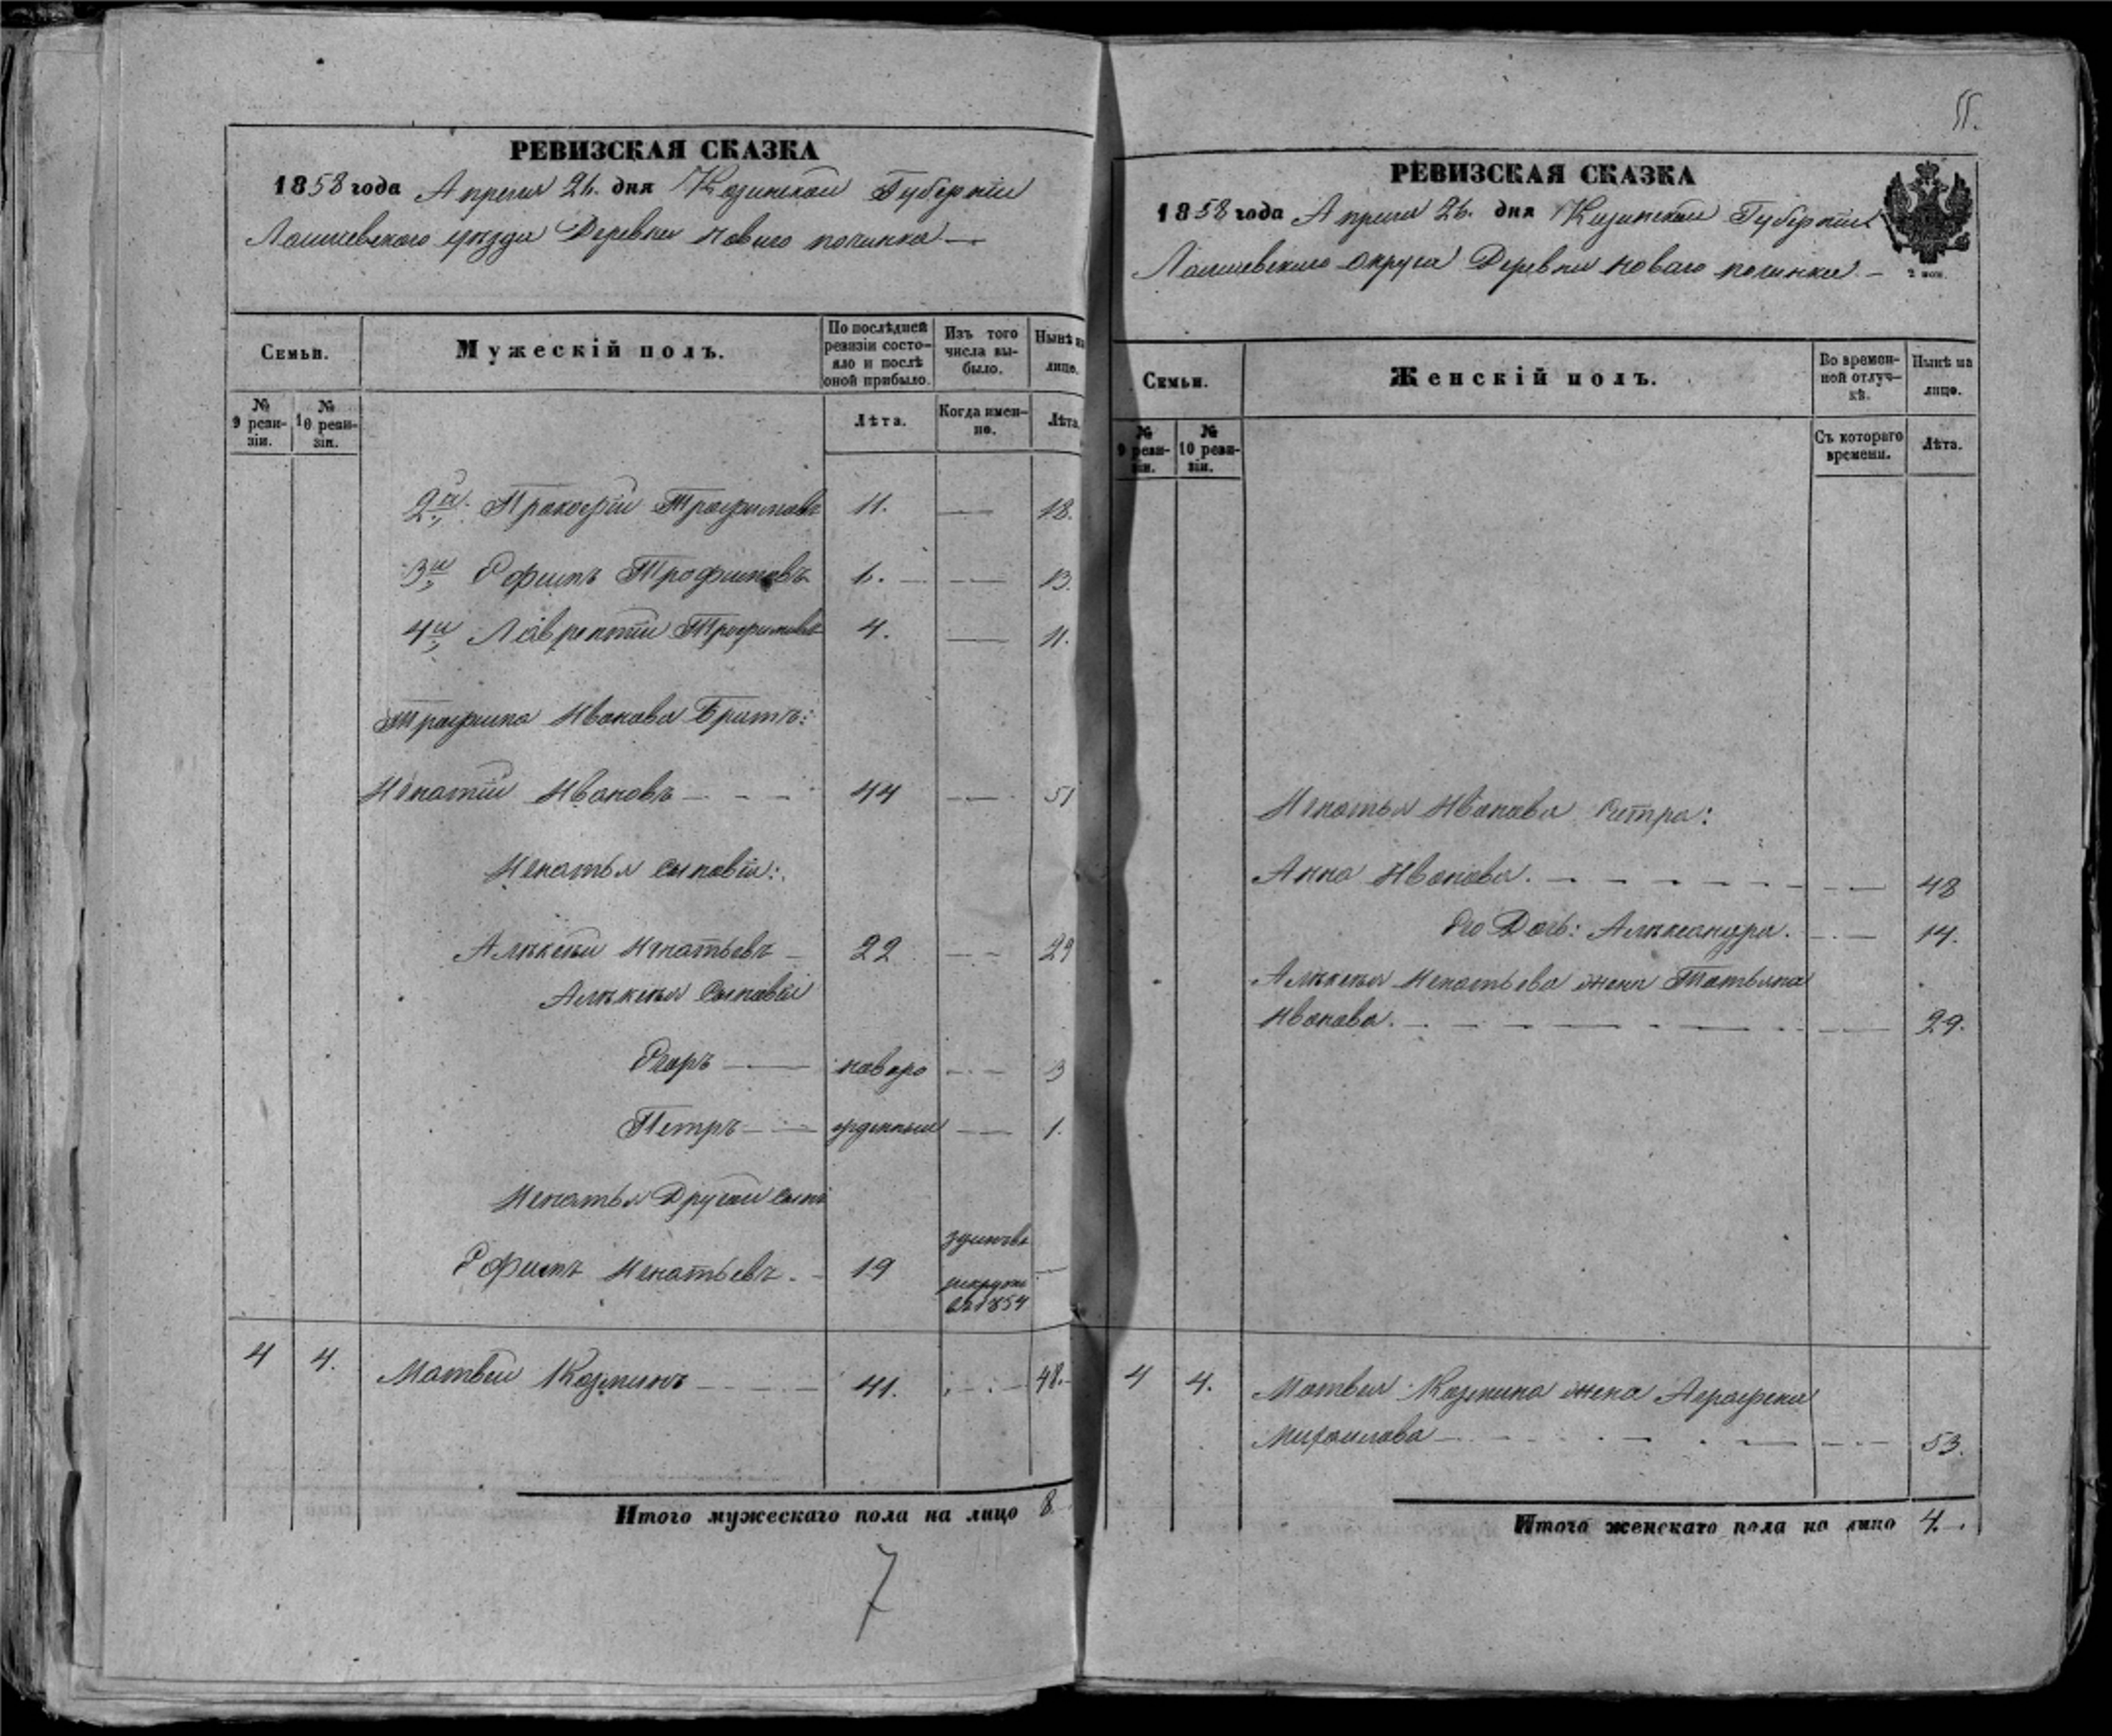 РЕВИЗСКАЯ СКАЗКА
1858 года Апреля 26. дня Казанской Губерніи
Лаишевского уѣзда Деревни Новаго починка
Семьи.
Мужескій полъ.
По послѣдней ревизіи состояло и послѣ оной прибыло.
Изъ того числа выбыло.
Нынѣ на лицо.
№ 9 ревизіи.
№ 10 ревизіи.
Лѣта.
Когда именно.
Лѣта.
2й Прокофій Трофимовъ 11. — 18.
3й Ефимъ Трофимовъ 6. — 13.
4й Лаврентій Трофимовъ 4. — 11.
Трофима Иванова Братъ:
Игнатій Ивановъ 44 — 51
Игнатья сыновія:
Алѣксѣй Игнатьевъ 22 — 29
Алѣксѣя Сыновія
Егоръ — новоро — 3
Петръ — жденный — 1.
Игнатья Другой сынъ
Ефимъ Игнатьевъ 19
рекруты
въ 1854 —
4 4. Матвей Козминъ 41. 48.
Итого мужескаго пола на лицо 8
7
55.
РЕВИЗСКАЯ СКАЗКА
1858 года Апреля 26. дня Казанской Губерніи
Лаишевского округа Деревни Новаго починка
2 коп.
Семьи.
Женскій полъ.
Во временной отлучкѣ.
Нынѣ на лицо.
№ 9 ревизіи.
№ 10 ревизіи.
Съ котораго времени.
Лѣта.
Игнатья Иванова сестра:
Анна Иванова. — 48
Его Дочь: Алѣксандра. — 14.
Алѣксѣя Игнатьева жена Татьяна
Иванова. — 29.
4 4. Матвея Козмина жена Аграфена
Михайлова — 53.
Итого женскаго пола на лицо 4.